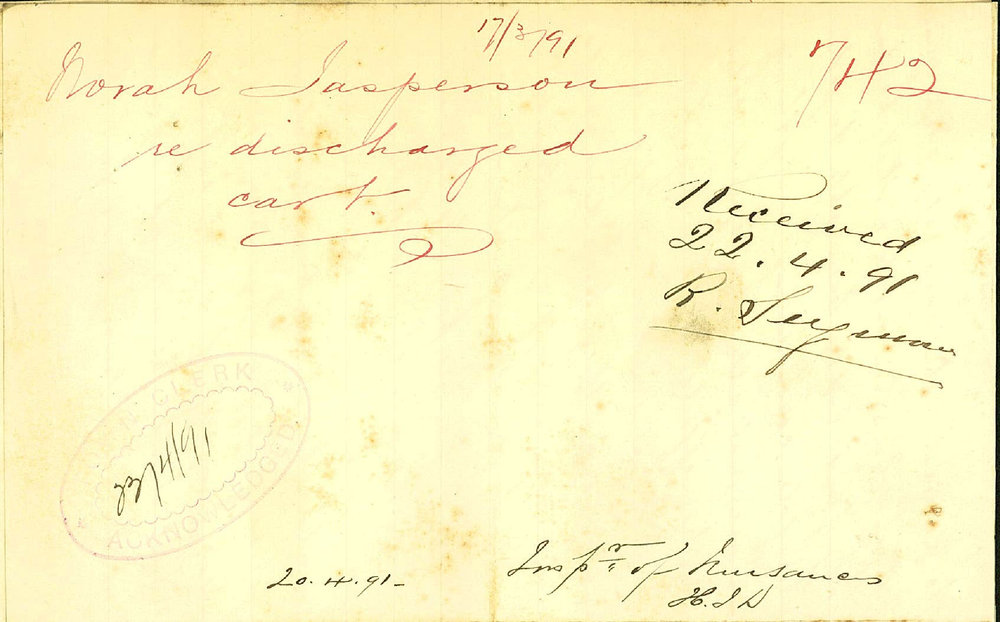 17/3/91
742
Norah Jasperson
re discharged
cart.
Received
22.4.91
R.
CLERK
ACKNOWLEDGED.
23/4/91
20.4.91-
Inspr of Nuisances
H.J.D